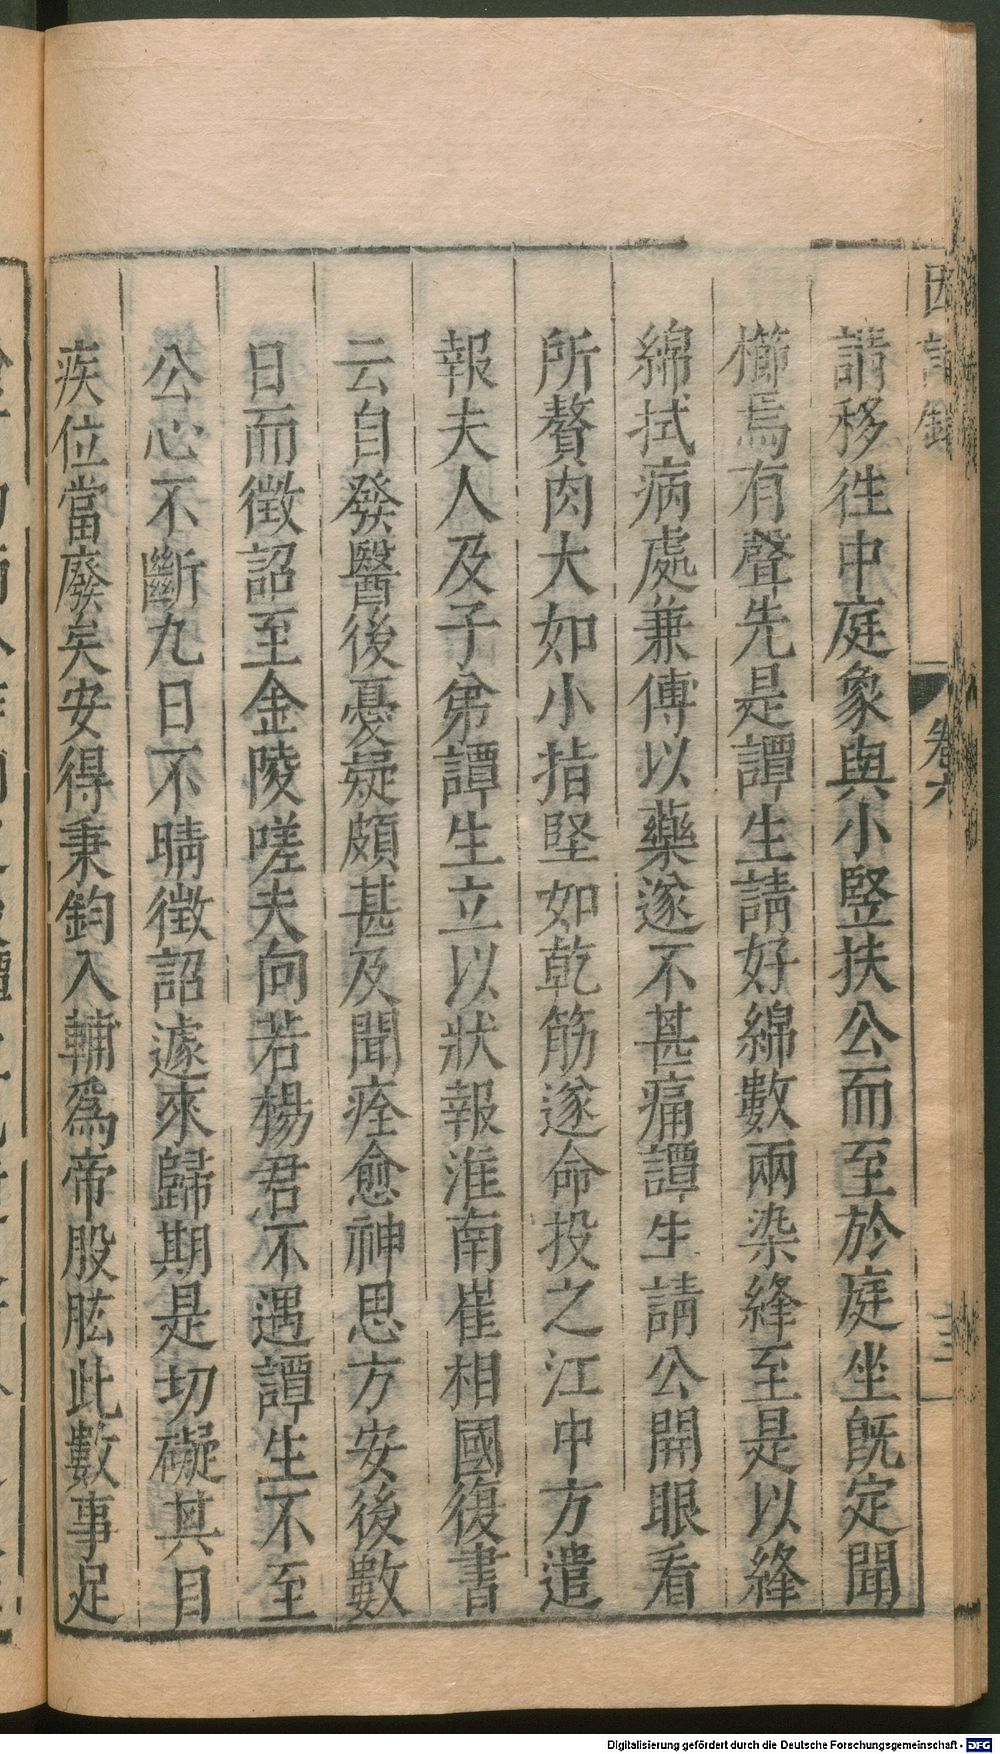 因話錄
卷六
請移徃中庭象與小豎扶公而至於庭坐既定聞
櫛焉有聲先是譚生請好綿數兩染絳至是以絳
綿拭病處兼傅以藥遂不甚痛譚生請公開眼看
所贅肉大如小指堅如乾筋遂命投之江中方遣
報夫人及子弟譚生立以狀報淮南崔相國復書
云自發醫後憂疑頗甚及聞痊愈神思方安後數
日而徵詔至金陵嗟夫向若楊君不遇譚生不至
公心不斷九日不晴徵詔遽來歸期是切礙其目
疾位當廢矣安得秉鈞入輔爲帝股肱此數事足
Digitalisierung gefördert durch die Deutsche Forschungsgemeinschaft - DFG